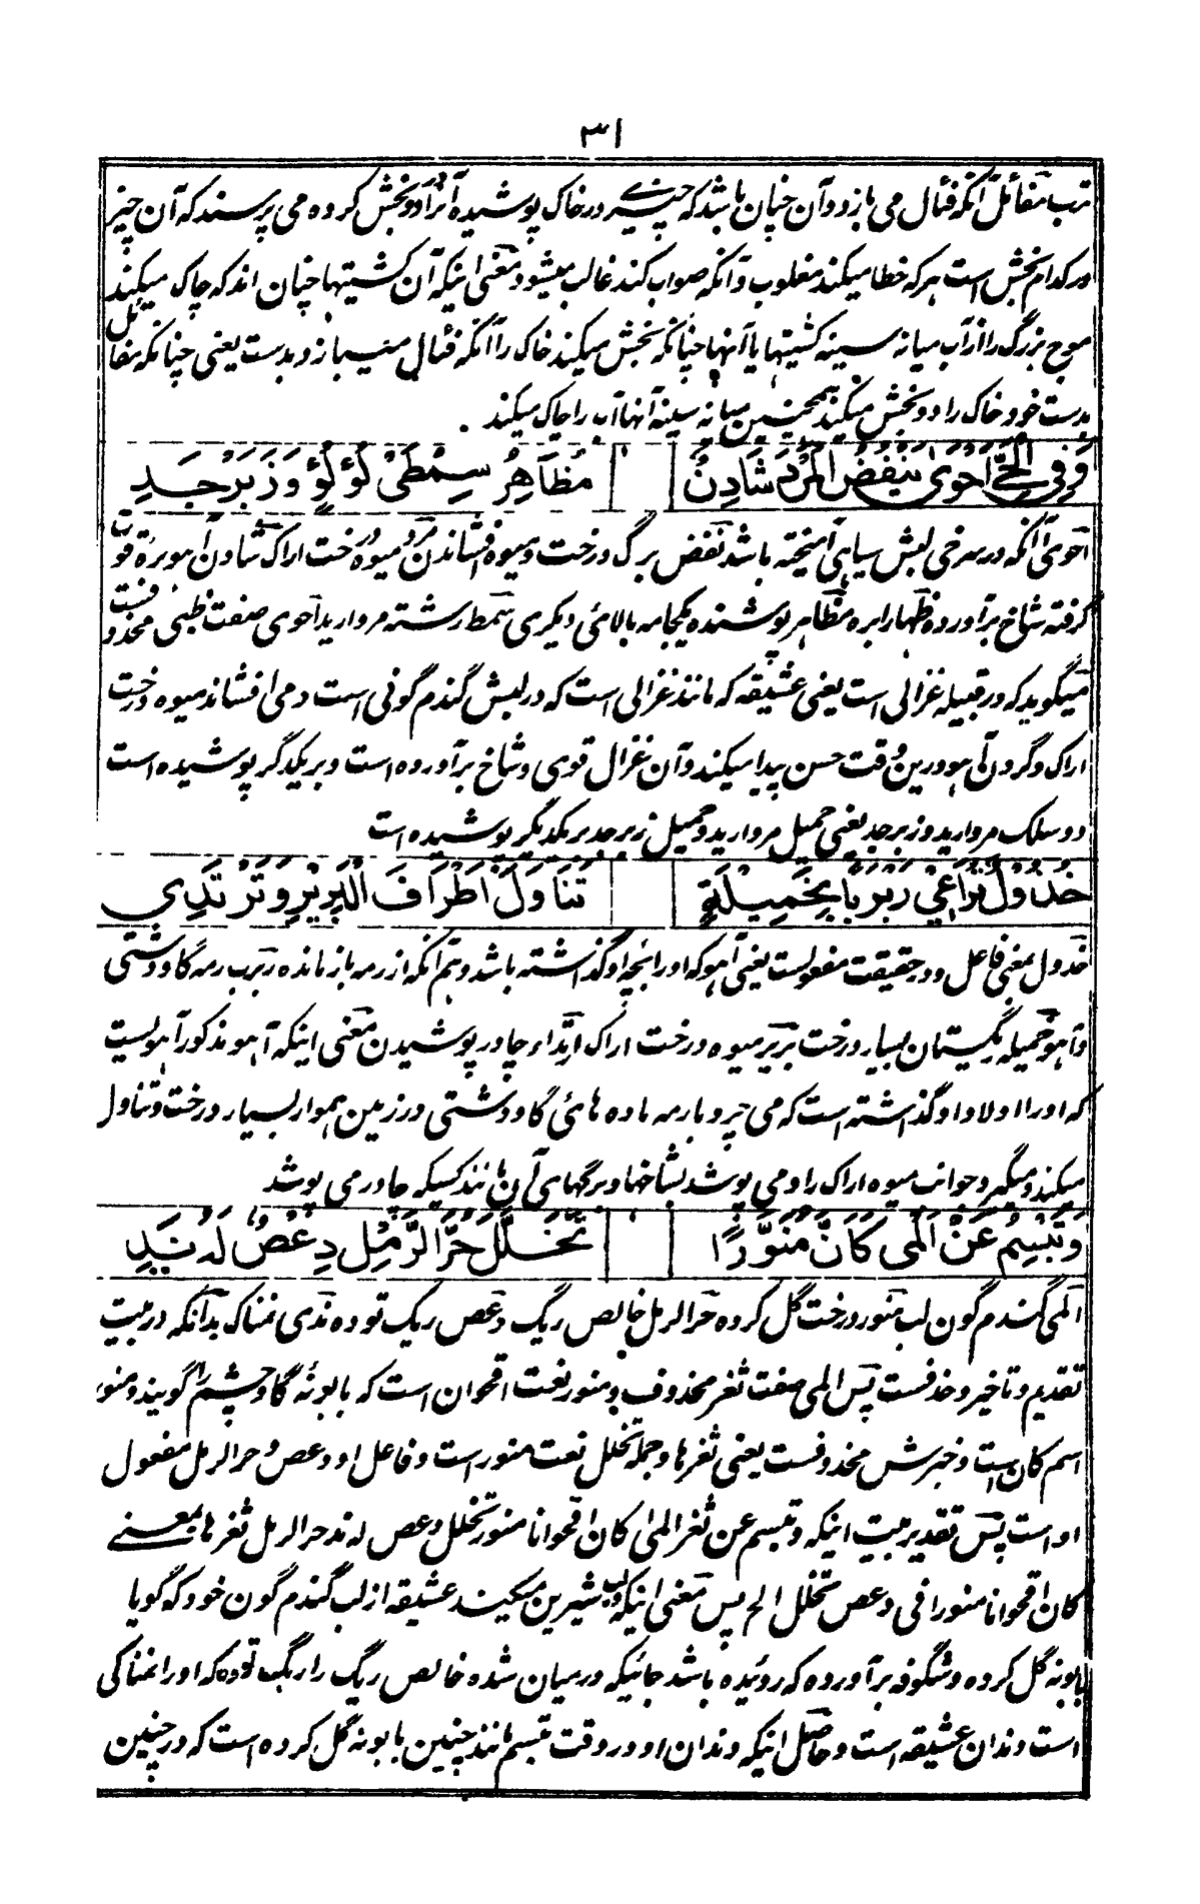 ۳۱
ترب مفائل آنکه فئال می بازد و آن چنان باشد که چیزے در خاک پوشیده آنرا دو بخش کرده می پرسند که آن چیز
در کدام بخش است هر که خطا میکند مغلوب و آنکه صواب کند غالب میشود معنی اینکه آن کشتیها چنان اند که چاک میکند
موج بزرگ را از آب میانه سینه کشتیها یا آنها چنانکه بخش میکند خاک را آنکه فئال میبازد بدست یعنی چنانکه مفائل
بدست خود خاک را دو بخش میکند همچنین میانه سینه آنها آب را چاک میکند .
وَفِی الْحَیِّ اَحْوٰی یَنْفُضُ الْمَرْدَ شَادِنٌ مُظَاهِرُ سِمْطَیْ لُؤْلُؤٍ وَزَبَرْجَدِ
احوی آنکه در سرخی لبش سیاهی آمیخته باشد نفض برگ درخت و میوه افشاندن مرد میوه درخت اراک شادن آهو بره قوت
گرفته شاخ برآورده ظهار ابره مظاهر پوشنده یکجامه بالائی دیگری سمط رشته مروارید احوی صفت ظبی محذوفست
میگوید که در قبیله غزالی است یعنی عشیقه که مانند غزالی است که در لبش گندم گونی است و می افشاند میوه درخت
اراک و گردن آهو درین وقت حسن پیدا میکند و آن غزال قوی و شاخ برآورده است و بر یکدگر پوشیده است
دو سلک مروارید و زبرجد یعنی حمیل مروارید و حمیل زبرجد بر یکدیگر پوشیده است
خَذُوْلٌ تُرَاعِیْ رَبْرَبًا بِخَمِیْلَةٍ تَنَاوَلُ اَطْرَافَ الْبَرِیْرِ وَتَرْتَدِیْ
خذول بمعنی فاعل و در حقیقت مفعولست یعنی آهو که او را بچه او گذاشته باشد و هم آنکه از رمه باز مانده ربرب رمه گاو دشتی
و آهو خمیله ریگستان بسیار درخت بریر میوه درخت اراک ارتداء چادر پوشیدن معنی اینکه آهو مذکور آهویست
که او را اولاد او گذاشته است که می چرد با رمه ماده هائی گاو دشتی در زمین هموار بسیار درخت و تناول
میکند و میگیرد جوانب میوه اراک را و می پوشد بشاخها و برگهای آن مانند کسیکه چادر می پوشد
وَتَبْسِمُ عَنْ اَلْمٰی کَاَنَّ مُنَوَّرًا تَخَلَّلَ حُرَّ الرَّمْلِ دِعْصٌ لَهُ نَدِ
المی گندم گون لب منور درخت گل کرده حر الرمل خالص ریگ دعص ریگ توده ندی نمناک بدآنکه در بیت
تقدیم و تاخیر و حذفست پس المی صفت ثغر محذوف و منور نعت اقحوان است که بابونه گاو چشم را گویند و منور
اسم کان است و خبرش محذوفست یعنی ثغرها و جمله تخلل نعت منور است و فاعل او دعص و حر الرمل مفعول
او است پس تقدیر بیت اینکه و تبسم عن ثغر المی کان اقحوانا منور تخلل دعص له ند حر الرمل ثغرها بمعنے
کان اقحوانا منورا فی دعص تخلل الخ پس معنی اینکه لب شیرین میکند عشیقه از لب گندم گون خود که گویا
بابونه گل کرده و شگوفه برآورده که روئیده باشد جائیکه درمیان شده خالص ریگ را ریگ توده که او را نمناکی
است دندان عشیقه است و حاصل اینکه دندان او در وقت تبسم مانند چنین بابونه گل کرده است که در چنین